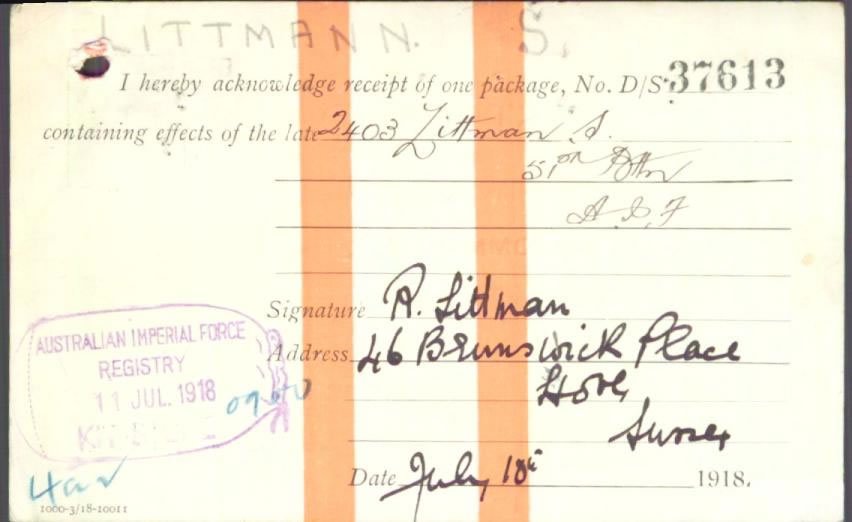 LITTMANN. S.
I hereby acknowledge receipt of one package, No. D/S 37613
containing effects of the late 2403 Littman S.
51st Bttn
A.I.F
Signature R. Littman
Address 46 Brunswick Place
Hove
Sussex
Date July 10th 1918.
AUSTRALIAN IMPERIAL FORCE
REGISTRY
11 JUL. 1918
KIT STORE
1000-3/18-10011